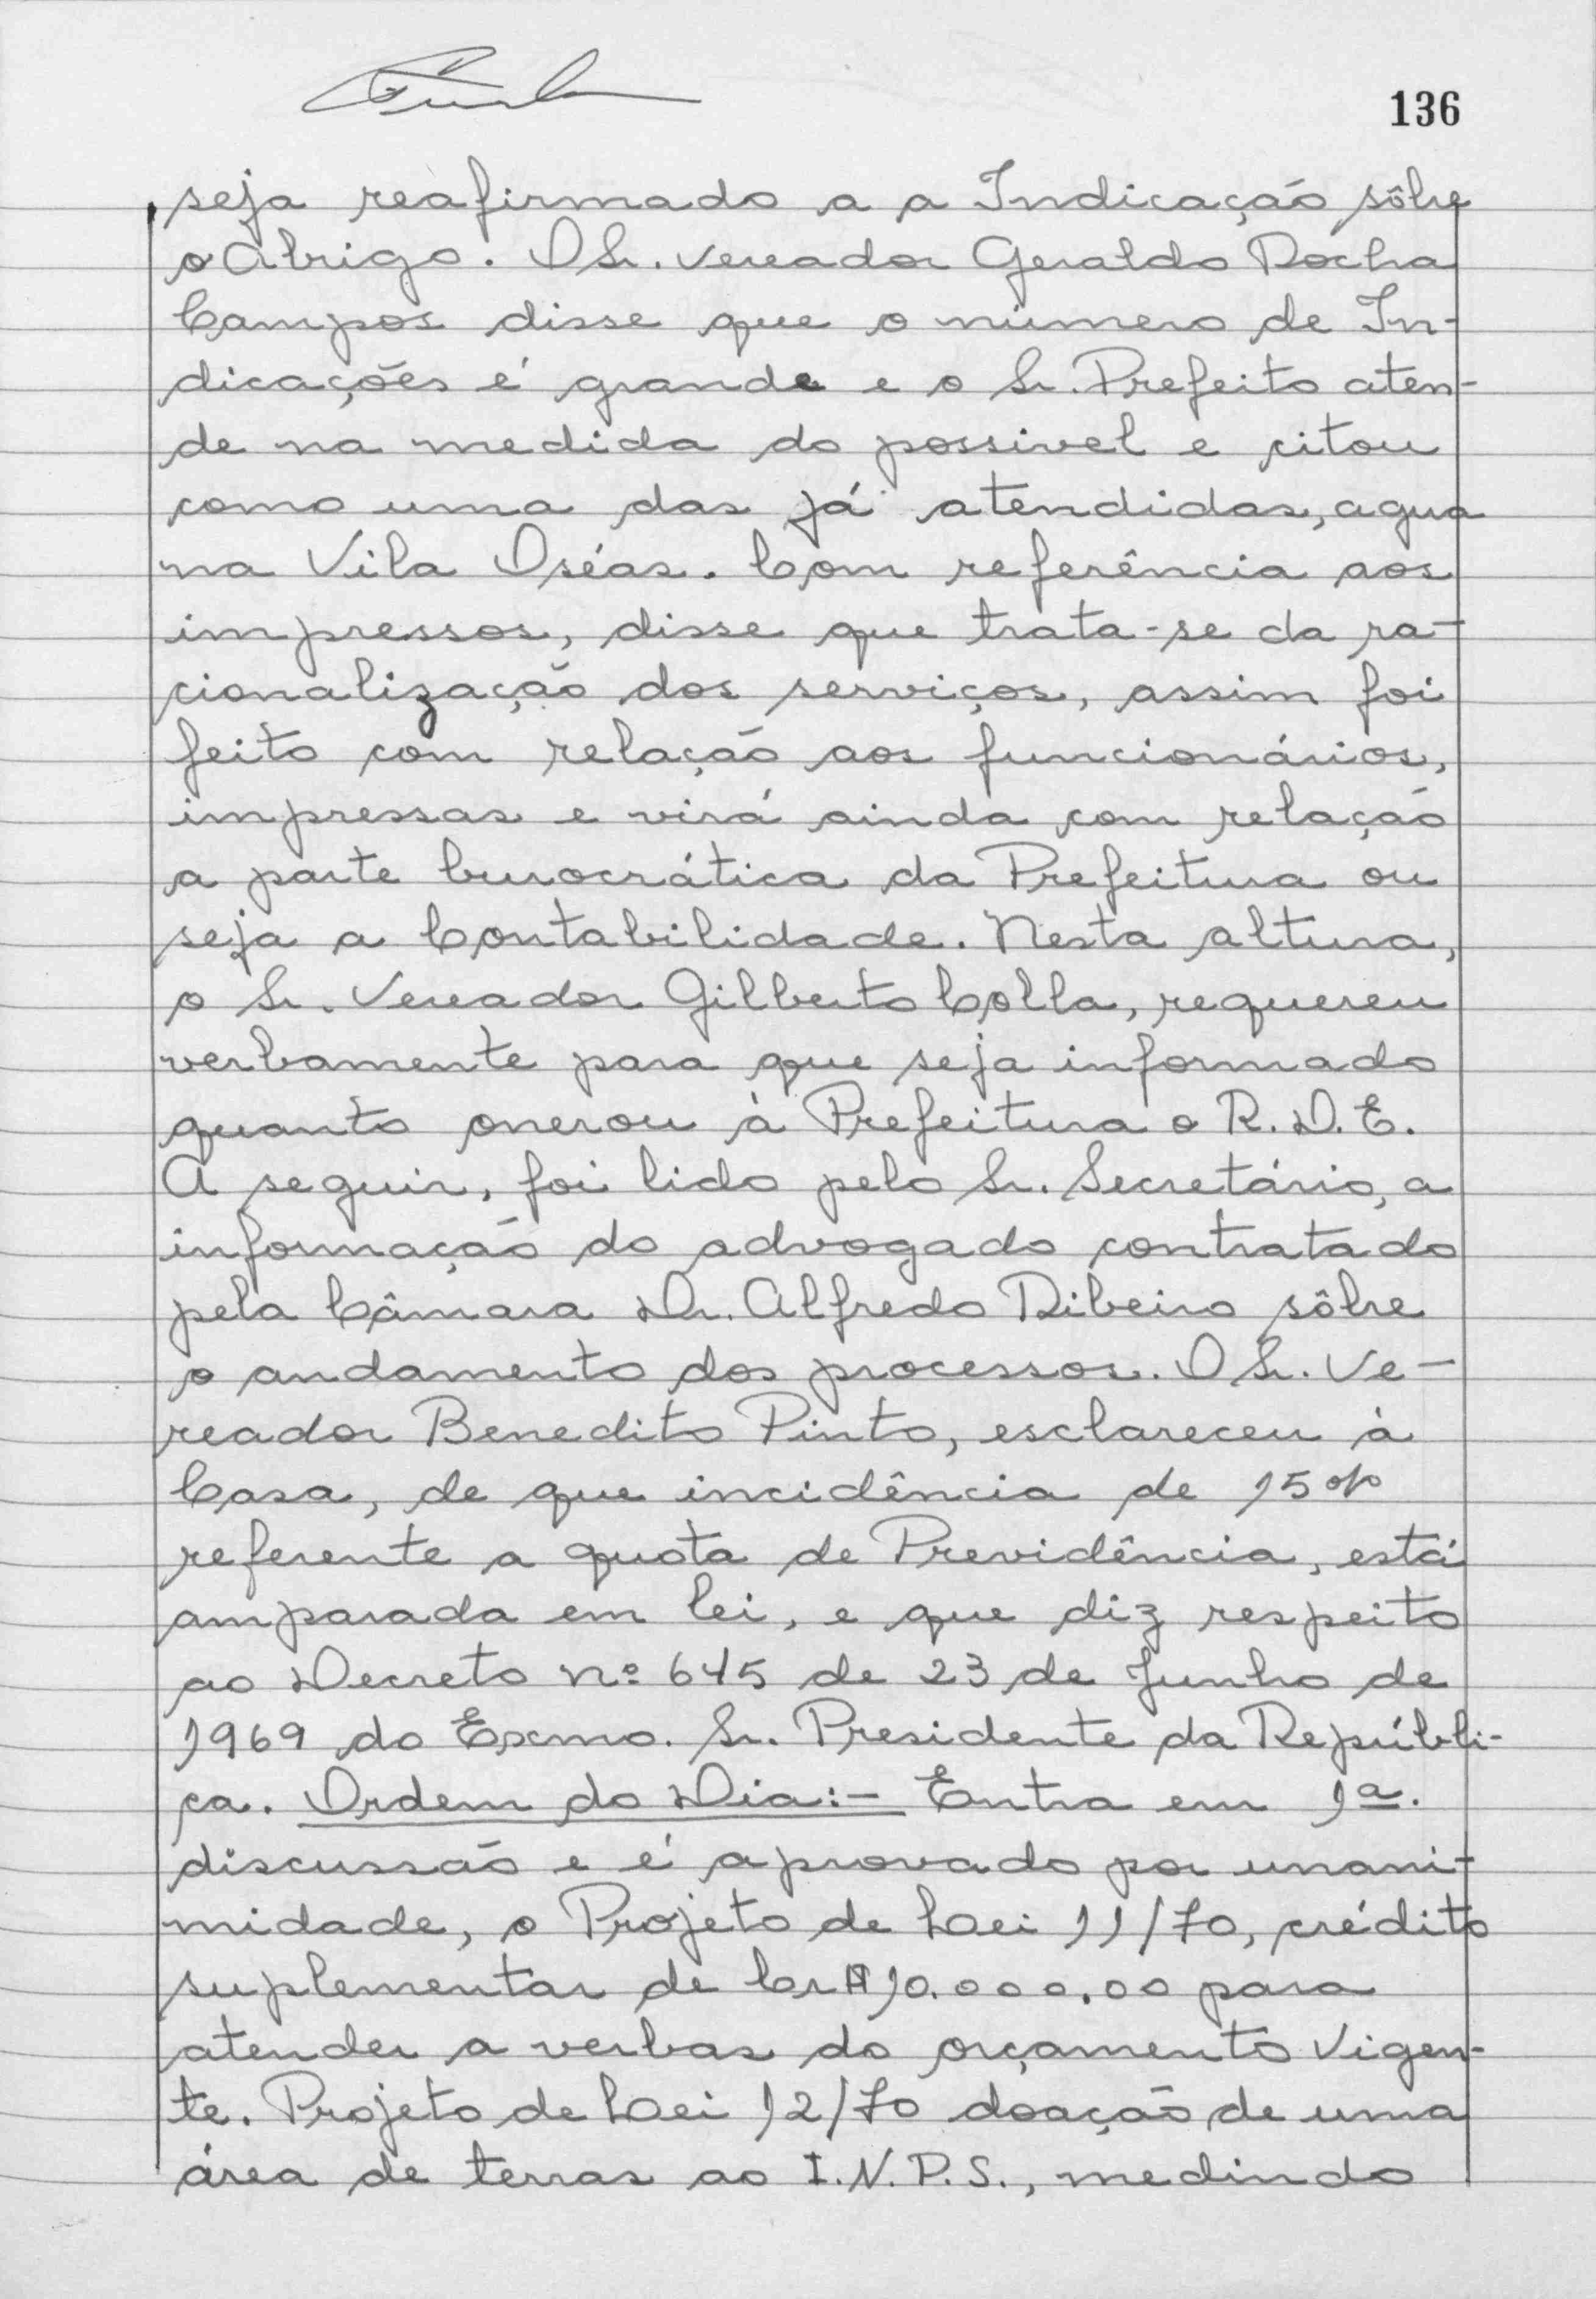 136
seja reafirmado a a Indicação sôbre
o Abrigo. O Sr. Vereador Geraldo Rocha
Campos disse que o número de In-
dicações é grande e o Sr. Prefeito aten-
de na medida do possivel e citou
como uma das já atendidas, agua
na Vila Oséas. Com referência aos
impressos, disse que trata-se da ra-
cionalização dos serviços, assim foi
feito com relação aos funcionários,
impressas e virá ainda com relação
a parte burocrática da Prefeitura ou
seja a Contabilidade. Nesta altura,
o Sr. Vereador Gilberto Colla, requereu
verbamente para que seja informado
quanto onerou à Prefeitura o R.D.E.
A seguir, foi lido pelo Sr. Secretário, a
informação do advogado contratado
pela Câmara Dr. Alfredo Ribeiro sôbre
o andamento dos processos. O Sr. Ve-
reador Benedito Pinto, esclareceu à
Casa, de que incidência de 15%
referente a quota de Previdência, está
amparada em lei, e que diz respeito
ao Decreto nº 645 de 23 de Junho de
1969 do Exmo. Sr. Presidente da Repúbli-
ca. Ordem do Dia:- Entra em 1ª.
discussão e é aprovado por unani-
midade, o Projeto de Lei 11/70, crédito
suplementar de Cr$10.000,00 para
atender a verbas do orçamento vigen-
te. Projeto de Lei 12/70 doação de uma
área de terras ao I.N.P.S., medindo